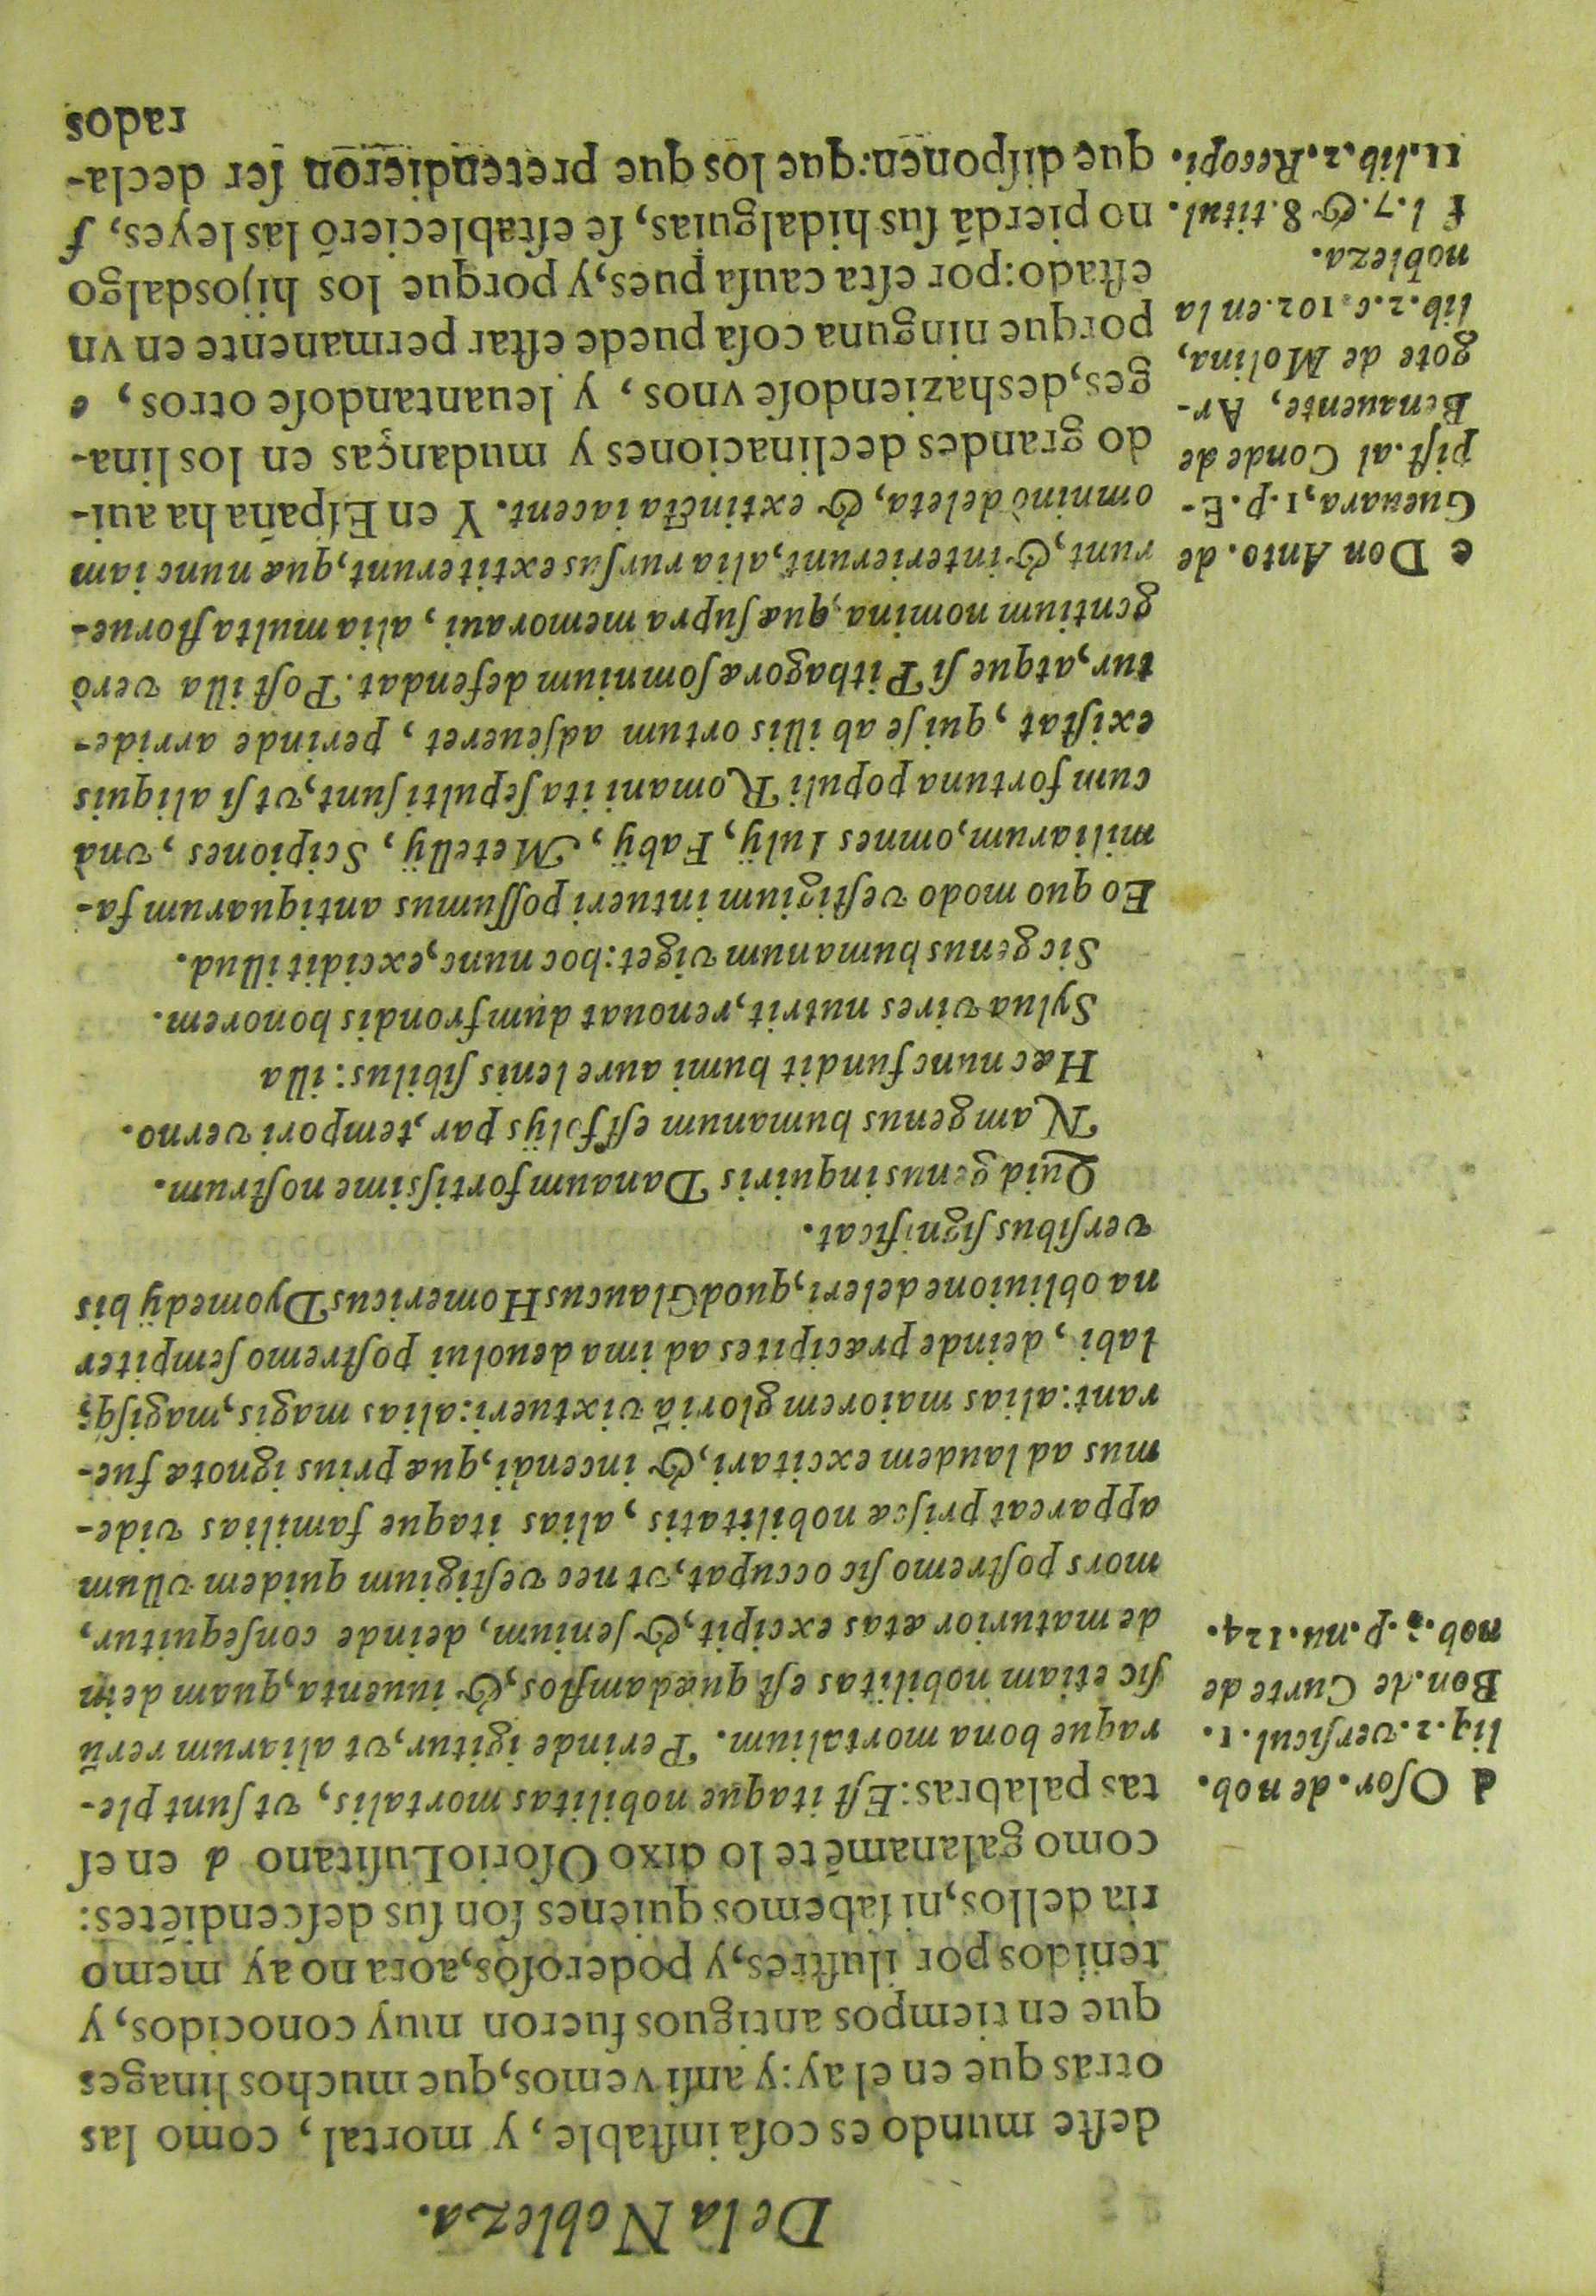 De la Nobleza.
deſte mundo es coſa inſtable, y mortal, como las
otras que en el ay: y anſi vemos, que muchos linages
que en tiempos antiguos fueron muy conocidos, y
tenidos por iluſtres, y poderoſos, aora no ay memo
ria dellos, ni ſabemos quienes ſon ſus deſcendiẽtes:
como galanamẽte lo dixo Oſorio Luſitano d en eſ
tas palabras: Eſt itaque nobilitas mortalis, vt ſunt ple-
raque bona mortalium. Perinde igitur, vt aliarum rerũ
ſic etiam nobilitas eſt quædam flos, & iuuenta, quam dein
de maturior ætas excipit, & ſenium, deinde conſequitur,
mors poſtremo ſic occupat, vt nec veſtigium quidem vllum
appareat priſcæ nobilitatis, alias itaque familias vide-
mus ad laudem excitari, & incendi, quæ prius ignotæ fue-
rant: alias maiorem gloriã vix tueri: alias magis, magiſq;
labi, deinde præcipites ad ima deuolui poſtremo ſempiter
na obliuione deleri, quod Glaucus Homericus Dyomedij his
verſibus ſignificat.
Quid genus inquiris Danaum fortiſsime noſtrum.
Nam genus humanum eſt folijs par, tempori verno.
Hæc nunc fundit humi aure lenis ſibilus: illa
Sylua vires nutrit, renouat dum frondis honorem.
Sic genus humanum viget: hoc nunc, excidit illud.
Eo quo modo veſtigium intueri poſſumus antiquarum fa-
miliarum, omnes Iulij, Fabij, Metellij, Scipiones, vnà
cum fortuna populi Romani ita ſepulti ſunt, vt ſi aliquis
exiſtat, qui ſe ab illis ortum adſeueret, perinde arride-
tur, atque ſi Pithagoræ ſomnium defendat. Poſt illa verò
gentium nomina, quæ ſupra memoraui, alia multa florue-
runt, & interierunt, alia rurſus extiterunt, quæ nunc iam
omninò deleta, & extincta iacent. Y en Eſpaña ha aui-
do grandes declinaciones y mudanças en los lina-
ges, deshaziendoſe vnos, y leuantandoſe otros, e
porque ninguna coſa puede eſtar permanente en vn
eſtado: por eſta cauſa pues, y porque los hijosdalgo
no pierdã ſus hidalguias, ſe eſtableciero˜ las leyes, f
que diſponen: que los que pretendieron ſer decla-
rados
d Oſor. de nob.
lib. 2. verſicul. 1.
Bon. de Curte de
nob. 3. p. nu. 124.
e Don Anto. de
Gueuara, 1. p. E-
piſt. al Conde de
Benauente, Ar-
gote de Molina,
lib. 2. c. 102. en la
nobleza.
f l. 7. & 8. titul.
11. lib. 2. Recopi.